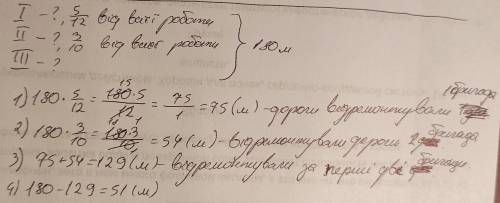 I - ?, 5/12 від всієї роботи
II - ? 3/10 від всієї роботи } 180 м
III - ?
1) 180 · 5/12 = 180·5/12 = 75/1 = 75 (м) - дороги відремонтували 1 бригада
2) 180 · 3/10 = 180·3/10 = 54 (м) - відремонтували дороги 2 бригада
3) 75 + 54 = 129 (м) - відремонтували за перші дві бригади
4) 180 - 129 = 51 (м)